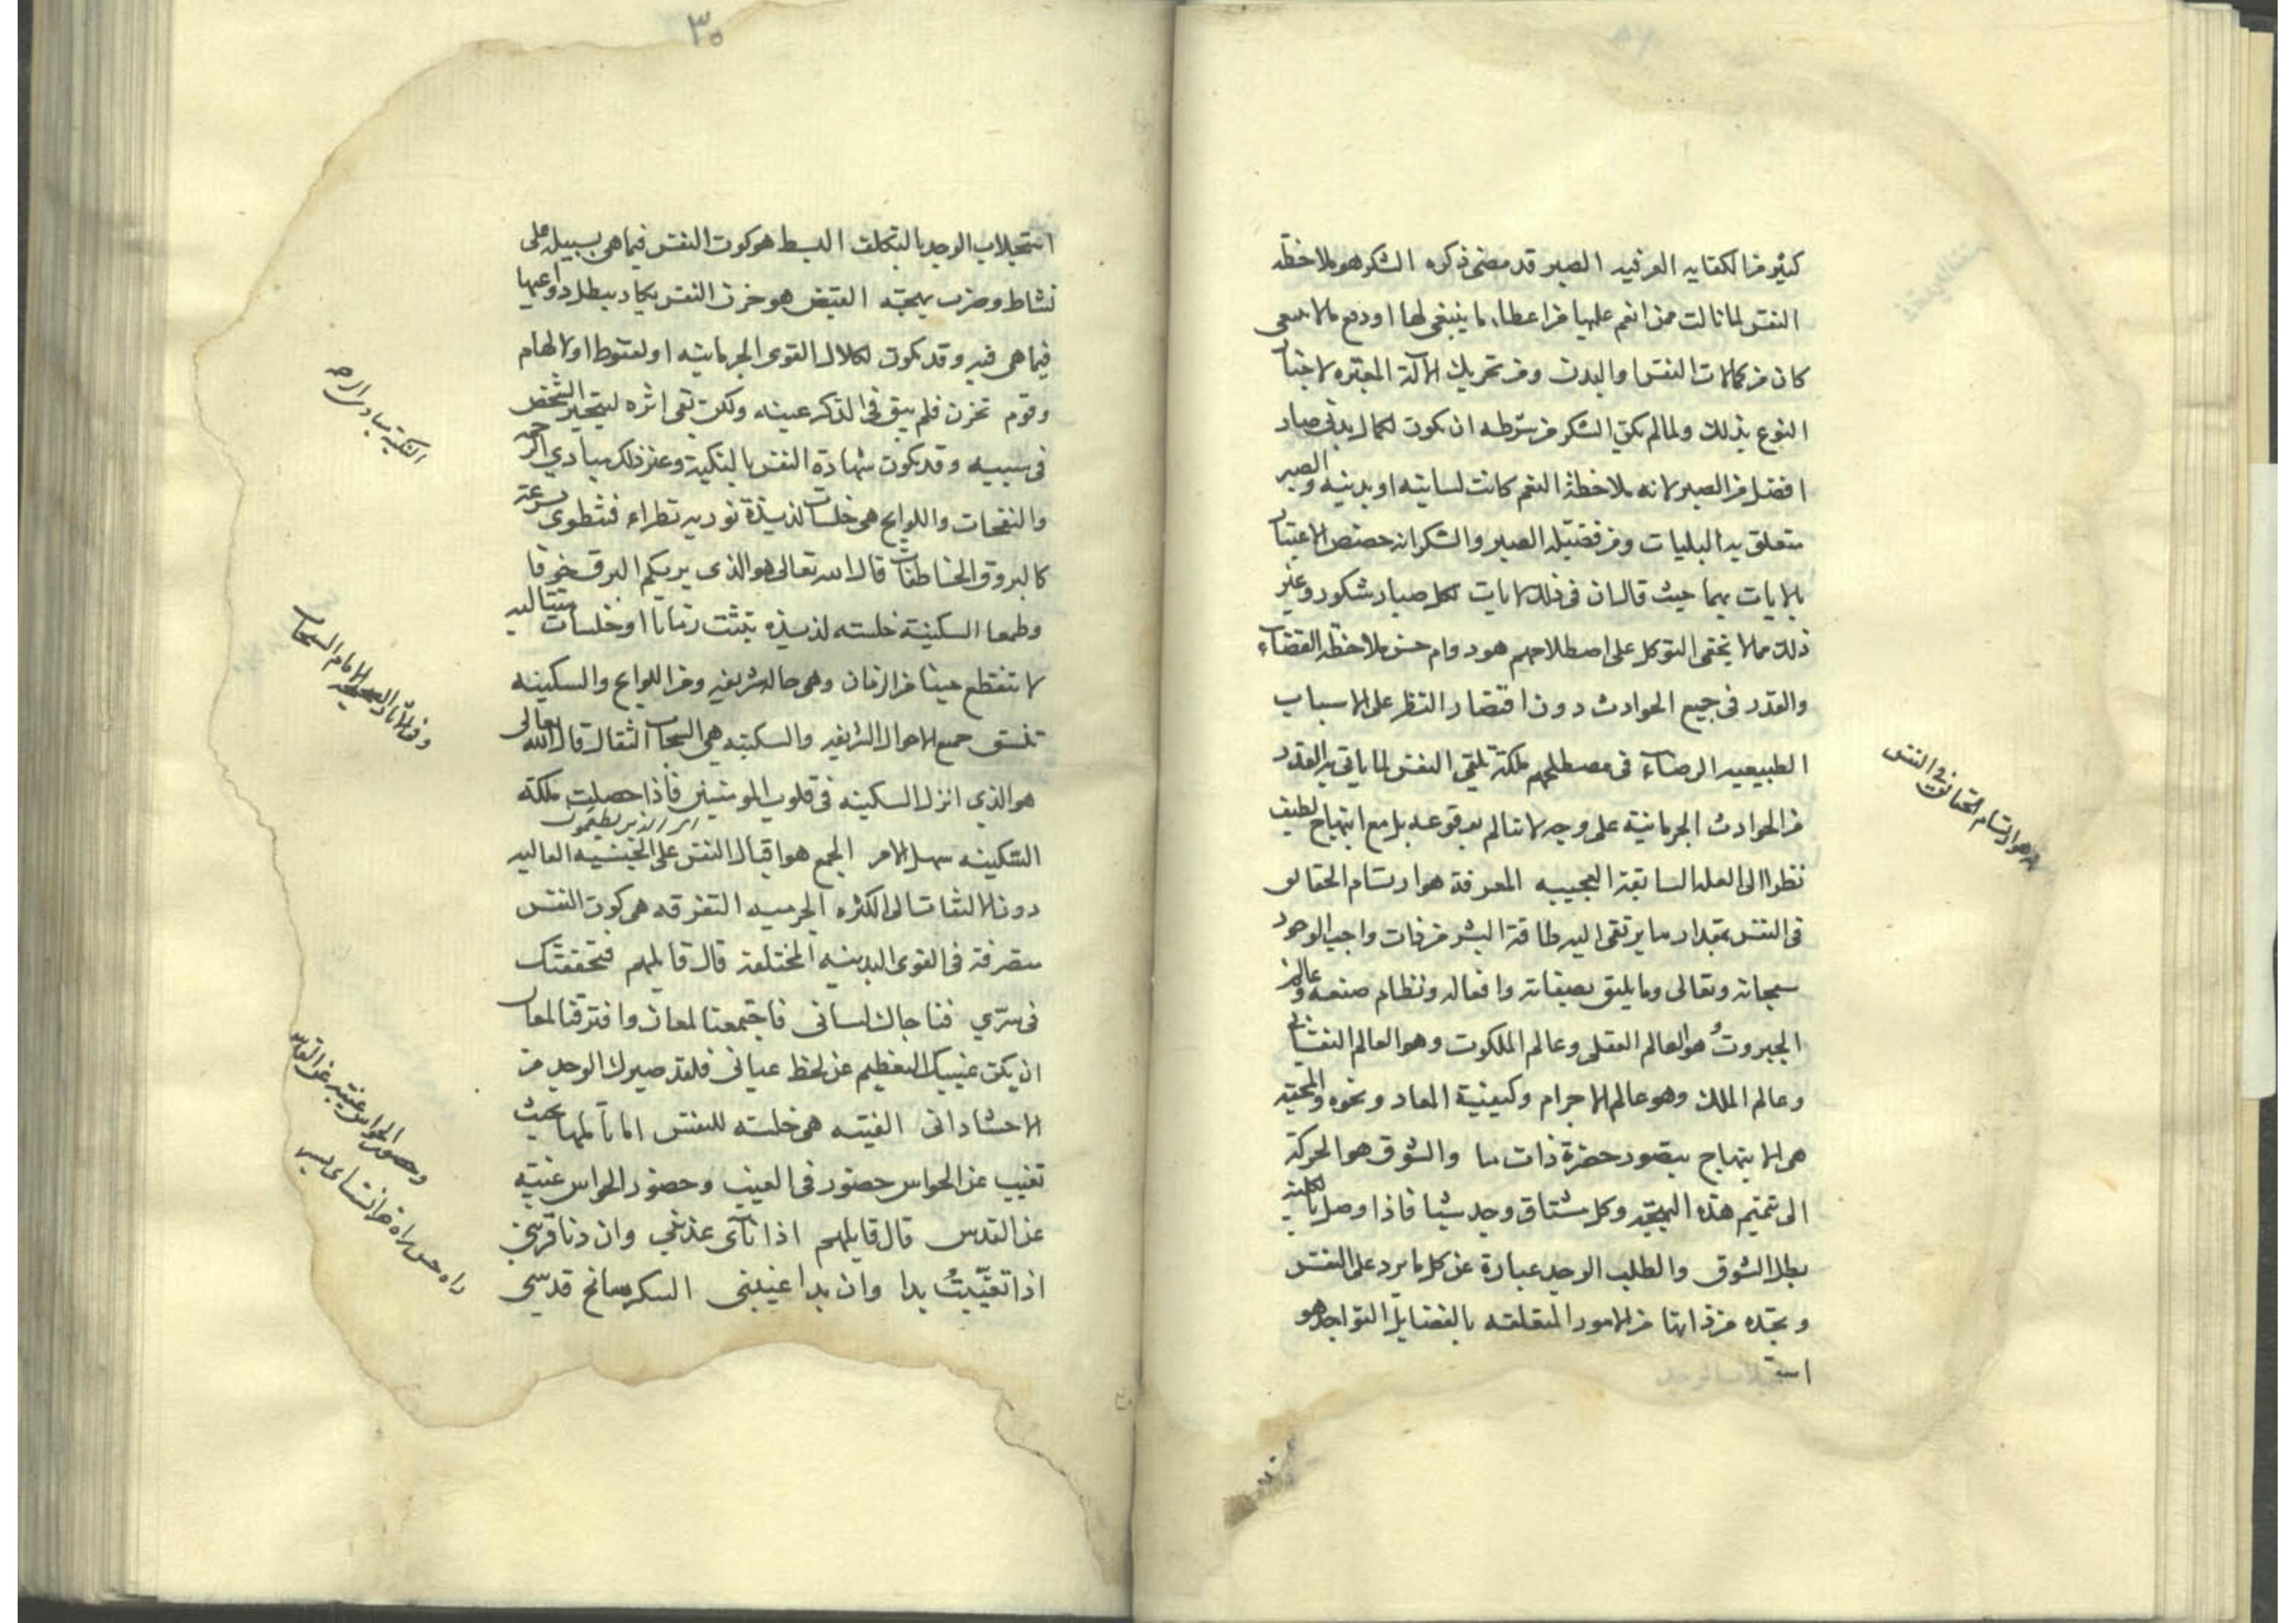 كثير من الكفاية العرفيه الصبر قد مضى ذكره الشكر هو ملاحظة
النفس لما نالت ممن انعم عليها من اعطاء ما ينبغي لها او دفع ما لا ينبغي
كان من كمالات النفس والبدن ومن تحريك الآلة المعتبره لاخبار
النوع بذلك ولما لم يكن الشكر من شرطه ان يكون لكمال بدني صار
افضل من الصبر لانه ملاحظة النعم كانت لسانيه او بدنيه والصبر
متعلق بالبليات ومن فضيلة الصبر والشكر انه خصص الاعتبار
بالايات بهما حيث قال ان في ذلك لايات لكل صبار شكور وغير
ذلك مما لا يخفى التوكل على اصطلاحهم هو دوام حسن ملاحظة القضاء
والقدر في جميع الحوادث دون اقتصار النظر على الاسباب
الطبيعيه الرضاء في مصطلحهم ملكة تلقى النفس لما ياتي به القدر
من الحوادث الجرمانية على وجه لا تتالم بوقوعه بل مع ابتهاج لطيف
نظرا الى العلة السابقة العجيبه المعرفة هو ارتسام الحقائق
في النفس بمقدار ما يرتقى اليه طاقة البشر من ذات واجب الوجود
سبحانه وتعالى وما يليق بصفاته وافعاله ونظام صنعه وعالم
الجبروت هو العالم العقلي وعالم الملكوت وهو العالم النفساني
وعالم الملك وهو عالم الاجرام وكيفية المعاد ونحوه والمحبه
هي الابتهاج بتصور حضرة ذات ما والشوق هو الحركة
الى تتميم هذه البهجة وكل مشتاق وجد شيا فاذا وصل بالكلية
بطل الشوق والطلب الوجد عبارة عن كل ما يرد على النفس
وتجده من ذاتها من الامور المتعلقه بالفضايل التواجد هو
است
هو ارتسام الحقائق في النفس
٣٥
استجلاب الوجد بالتكلف البسط هو كون النفس فيما هي بسبيله على
نشاط وضرب بهجته القبض هو حزن النفس يكاد يبطل دواعيها
فيما هي فيه وقد يكون لكلال القوى الجرمانيه او لقنوط او لالهام
وقوم تحزن فلم يبق في الذكر عينه ولكن بقى اثره ليتحير الشخص
في سببه وقد يكون شهادة النفس بالنكبة وعنز ذلك مبادي الر
والنفحات واللوايح هي خلسات لذيذة نوريه تطراء فتنطوى بسرعة
كالبروق الخاطفات قال الله تعالى هو الذي يريكم البرق خوفا
وطمعا السكينة خلسته لذيذه تثبت زمانا او خلسات متتاليه
لا تنقطع حينا من الزمان وهي حالة شريفه ومن اللوايح والسكينه
تنشق جميع الاحوال الشريفه والسكينه هي السحاب الثقال قال الله تعالى
هو الذي انزل السكينه في قلوب المومنين فاذا حصلت ملكة
السكينه سهل الامر الجمع هو اقبال النفس على الحيثيه العاليه
دون الالتفات الى الكثره الجرميه التفرقه هي كون النفس
متصرفة في القوى البدنيه المختلفة قال قايلهم فتحققتك
في سرّي فناجاك لساني فاجتمعنا لمعان وافترقنا لمعان
ان يكن غيبك التعظيم عن لحظ عياني فلقد صيرك الوجد من
الاحشا داني الغيبه هي خلسته للنفس الى عالمها بحيث
تغيب عن الحواس حضور في الغيب وحضور الحواس غيبة
عن القدس قال قايلهم اذا نآى عذبني وان دنا قربني
اذا تغيّبتُ بدا وان بدا غيبني السكر سانح قدسي